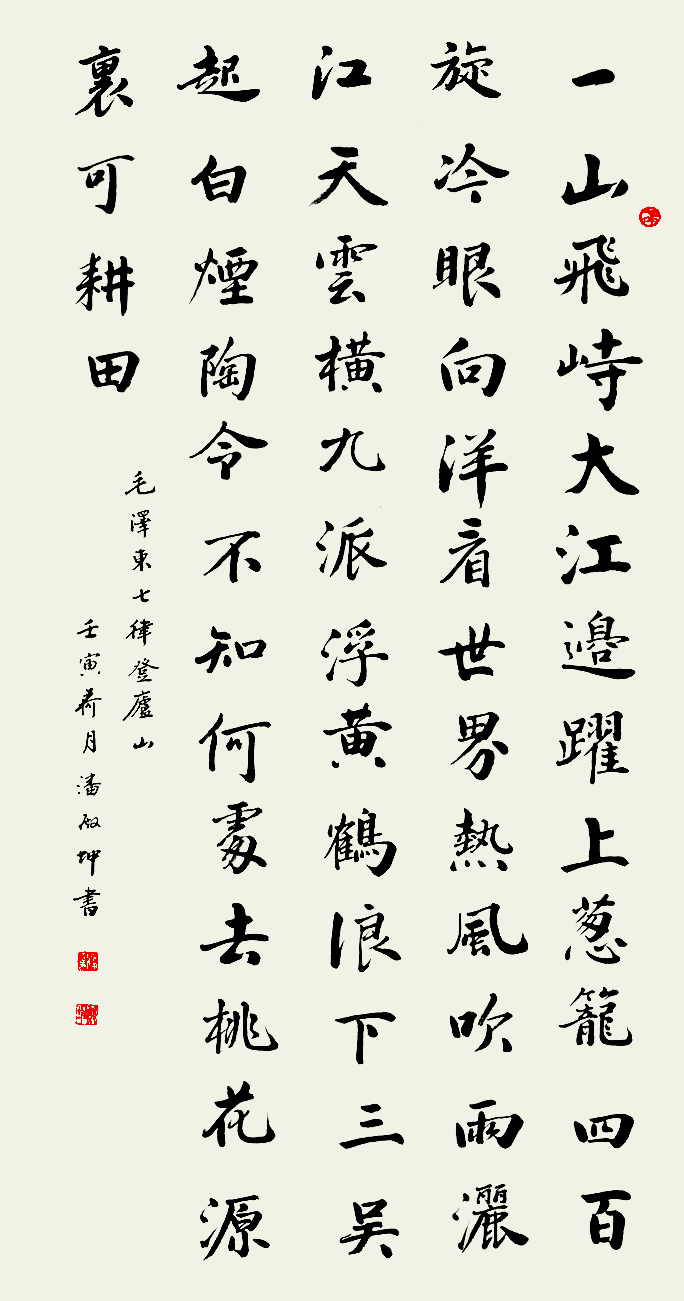 一山飛峙大江邊躍上葱籠四百
旋冷眼向洋看世界熱風吹雨灑
江天雲橫九派浮黄鶴浪下三吴
起白煙陶令不知何處去桃花源
裏可耕田
毛澤東七律登廬山
壬寅荷月潘啟坤書